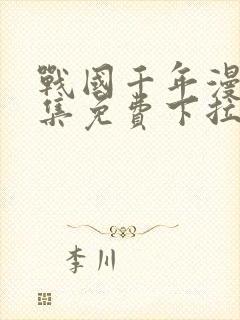 戰國千年漫
集免費下拉
李川